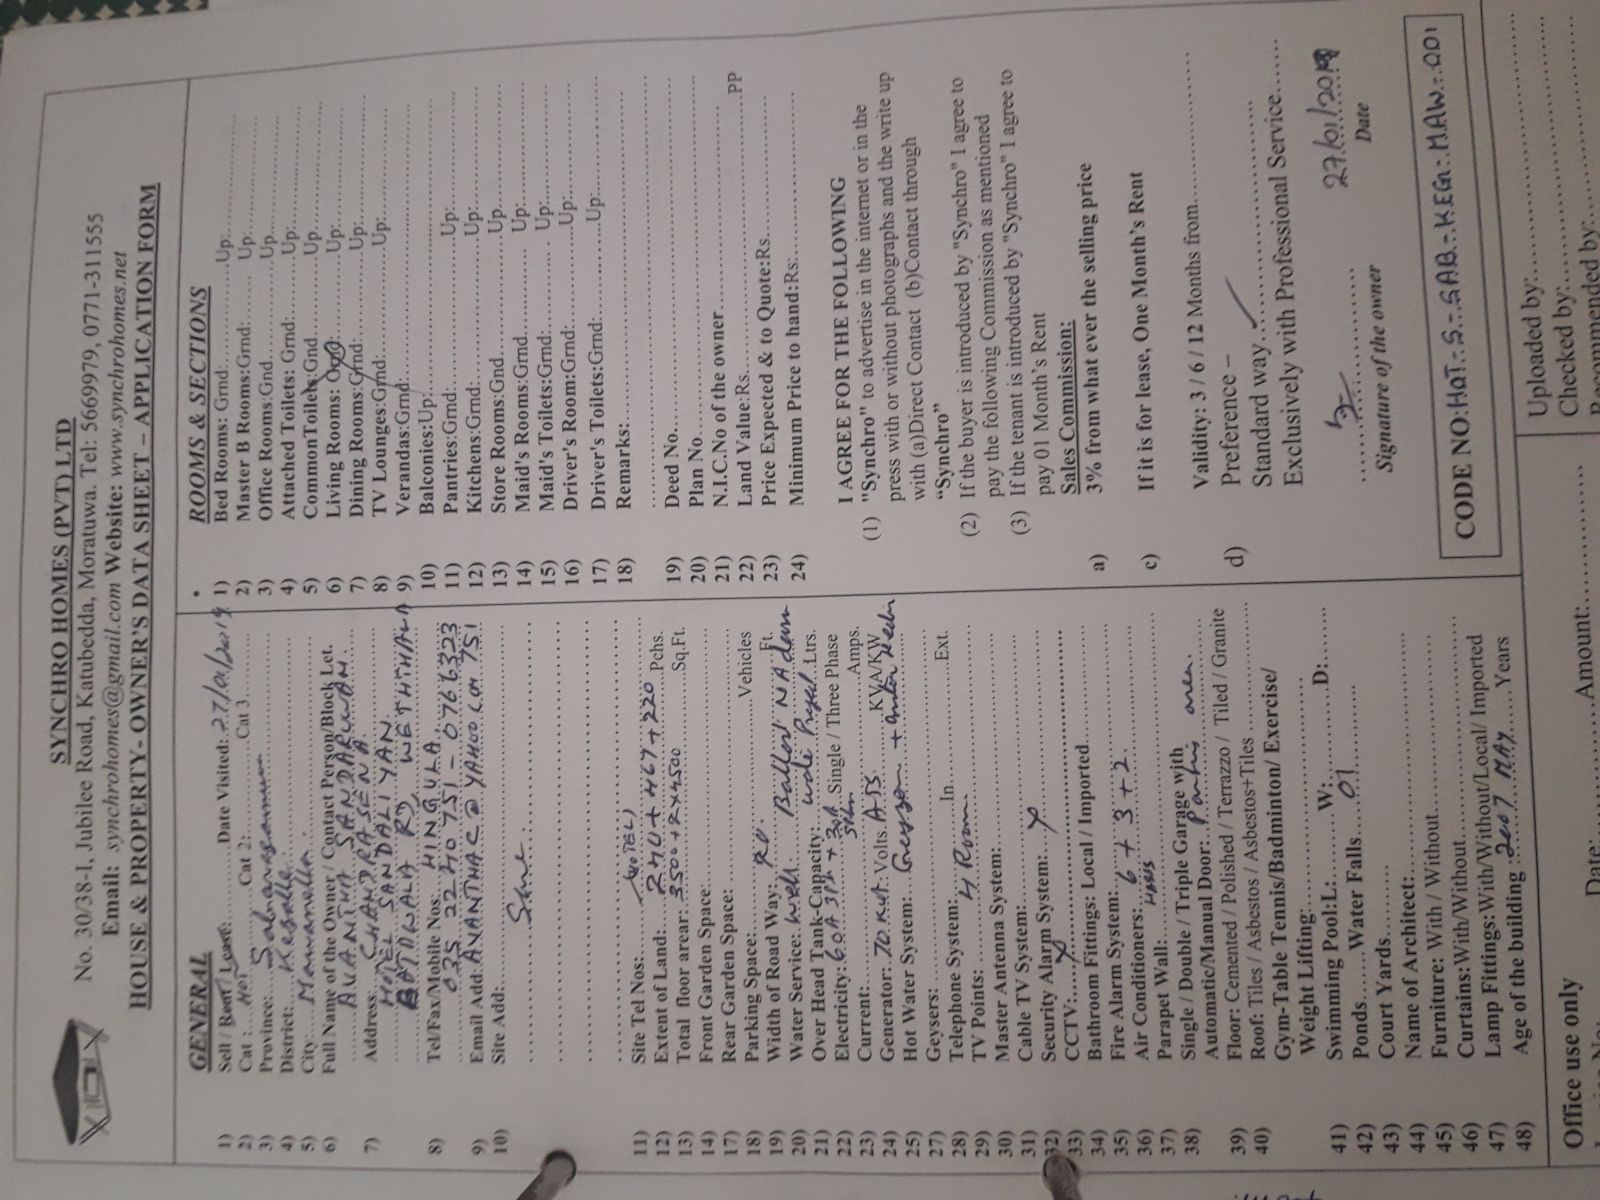 SYNCHRO HOMES (PVT) LTD
No. 30/38-1, Jubilee Road, Katubedda, Moratuwa. Tel: 5669979, 0771-311555
Email: synchrohomes@gmail.com Website: www.synchrohomes.net
HOUSE & PROPERTY- OWNER'S DATA SHEET – APPLICATION FORM
GENERAL
1) Sell / Rent / Lease:........Date Visited: 27/01/2019
2) Cat : Hot Cat 2: Cat 3
3) Province: Sabaragamuwa
4) District: Kegalle
5) City: Mawanella
6) Full Name of the Owner / Contact Person/Block Let.
AVANTHA SANDARUWAN
7) Address: CHANDRASENA
HOTEL SANDALIYAN
RD WETHTHAWA
8) Tel/Fax/Mobile Nos: HINGULA
035 2240 751 - 0766323
9) Email Add: AYANTHAC@YAHOO.COM 751
10) Site Add:
Same
11) Site Tel Nos: (HOTEL)
12) Extent of Land: 240 + 467 + 220 Pchs.
13) Total floor arear: 3500 + 2x4500 Sq.Ft.
14) Front Garden Space:
17) Rear Garden Space:
18) Parking Space: Vehicles
19) Width of Road Way: 20 Ft.
20) Water Service: Well
21) Over Head Tank-Capacity: Ltrs.
22) Electricity: 60A 3Ph + 30A Single / Three Phase
23) Current: Amps.
24) Generator: 70 KVA Volts KVA/KW
25) Hot Water System: Geyser +
27) Geysers:
28) Telephone System: In Ext.
29) TV Points: 4 Room
30) Master Antenna System:
31) Cable TV System:
32) Security Alarm System:
33) CCTV:
34) Bathroom Fittings: Local / Imported
35) Fire Alarm System:
36) Air Conditioners: 6 + 3 + 2
37) Parapet Wall:
38) Single / Double / Triple Garage with
Automatic/Manual Door: area.
39) Floor: Cemented / Polished / Terrazzo / Tiled / Granite
40) Roof: Tiles / Asbestos / Asbestos+Tiles
Gym-Table Tennis/Badminton/ Exercise/
Weight Lifting:
41) Swimming Pool:L: W: D:
42) Ponds Water Falls 01
43) Court Yards
44) Name of Architect:
45) Furniture: With / Without
46) Curtains:With/Without
47) Lamp Fittings:With/Without/Local/ Imported
48) Age of the building 2007 MAY Years
Office use only
Date: Amount:
• ROOMS & SECTIONS
1) Bed Rooms: Grnd: Up:
2) Master B Rooms:Grnd: Up:
3) Office Rooms:Grnd Up:
4) Attached Toilets: Grnd: Up:
5) CommonToilets:Gnd Up.
6) Living Rooms: Up:
7) Dining Rooms:Grnd: Up:
8) TV Lounges:Grnd: Up:
9) Verandas:Grnd:
10) Balconies:Up:
11) Pantries:Grnd: Up:
12) Kitchens:Grnd: Up:
13) Store Rooms:Gnd Up.
14) Maid's Rooms:Grnd Up:
15) Maid's Toilets:Grnd: Up:
16) Driver's Room:Grnd Up:
17) Driver's Toilets:Grnd: Up:
18) Remarks:
19) Deed No.
20) Plan No.
21) N.I.C.No of the owner
22) Land Value:Rs. PP
23) Price Expected & to Quote:Rs.
24) Minimum Price to hand:Rs:
I AGREE FOR THE FOLLOWING
(1) "Synchro" to advertise in the internet or in the
press with or without photographs and the write up
with (a)Direct Contact (b)Contact through
“Synchro”
(2) If the buyer is introduced by "Synchro" I agree to
pay the following Commission as mentioned
(3) If the tenant is introduced by "Synchro" I agree to
pay 01 Month's Rent
Sales Commission:
a) 3% from what ever the selling price
c) If it is for lease, One Month's Rent
Validity: 3 / 6 / 12 Months from
d) Preference –
Standard way
Exclusively with Professional Service
27/01/2019
Signature of the owner Date
CODE NO:HOT.-S.-SAB.-KEG.-MAW.-001
Uploaded by:
Checked by:
Recommended by: